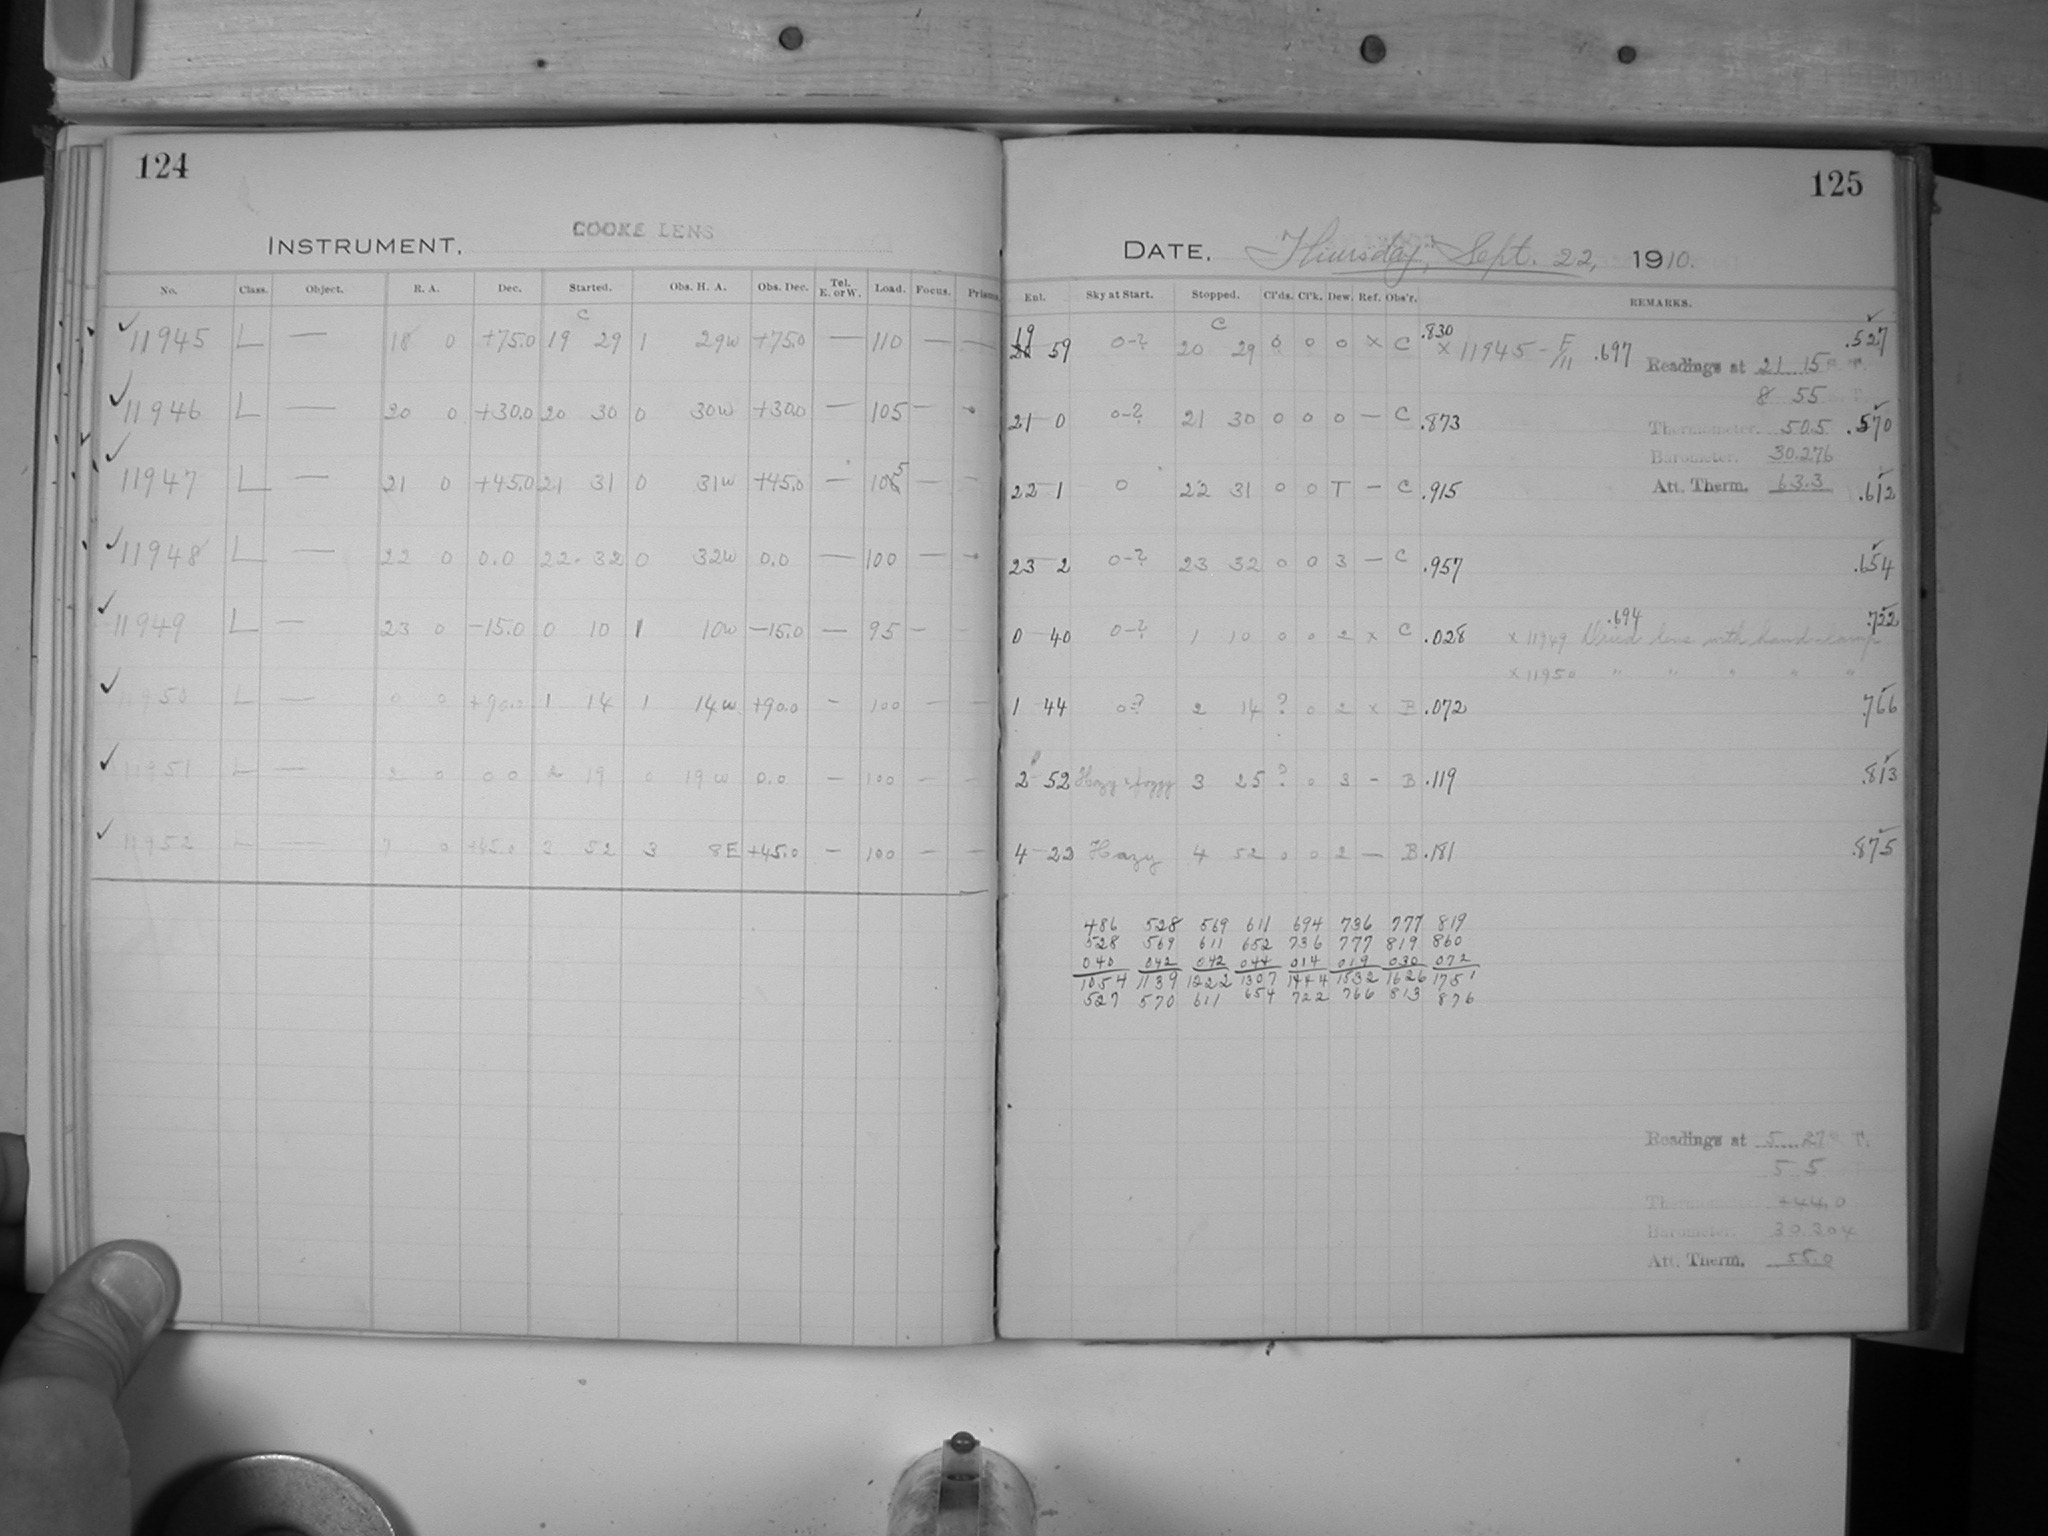 124
COOKE LENS
INSTRUMENT,
No. Class. Object. R. A. Dec. Started. Obs. H. A. Obs. Dec. Tel. E. or W. Load. Focus. Prisms.
11945 L — 18 0 +75.0 19 29 C 1 29w +75.0 — 110 — —
11946 L — 20 0 +30.0 20 30 0 30w +30.0 — 105 —
11947 L — 21 0 +45.0 21 31 0 31w +45.0 — 105 — —
11948 L — 22 0 0.0 22 32 0 32w 0.0 — 100 — —
11949 L — 23 0 -15.0 0 10 1 10w -15.0 — 95 — -
11950 L — 0 0 +90.0 1 14 1 14w +90.0 - 100 — —
11951 L — 2 0 0 0 2 19 0 19w 0.0 - 100 - -
11952 L — 7 0 +45.0 3 52 3 8E +45.0 - 100 - -
125
DATE, Thursday, Sept. 22, 1910.
Ent. Sky at Start. Stopped. Cl'ds. Cl'k. Dew. Ref. Obs'r. REMARKS.
19 59 0-? 20 29 C 0 0 0 x C .830 x 11945 - F/11 .697 .527
Readings at 21 15 S. T.
8 55
21 0 0-? 21 30 0 0 0 — C .873 .570
Thermometer. 50.5
Barometer. 30.276
22 1 0 22 31 0 0 T — C .915 .612
Att. Therm. 63.3
23 2 0-? 23 32 0 0 3 — C .957 .654
0 40 0-? 1 10 0 0 2 x C .028 x 11949 Dried lens with hand-lamp .694 .722
x 11950 " " " " "
1 44 0? 2 14 ? 0 2 x B .072 .766
2 52 Hazy & foggy 3 25 ? 0 3 - B .119 .813
4 22 Hazy 4 52 0 0 2 — B .181 .875
486 528 569 611 694 736 777 819
528 569 611 652 736 777 819 860
040 042 042 044 014 019 030 072
1054 1139 1222 1307 1444 1532 1626 1751
527 570 611 654 722 766 813 876
Readings at 5 27 S. T.
5 5
Thermometer. +44.0
Barometer. 30.304
Att. Therm. 55.0